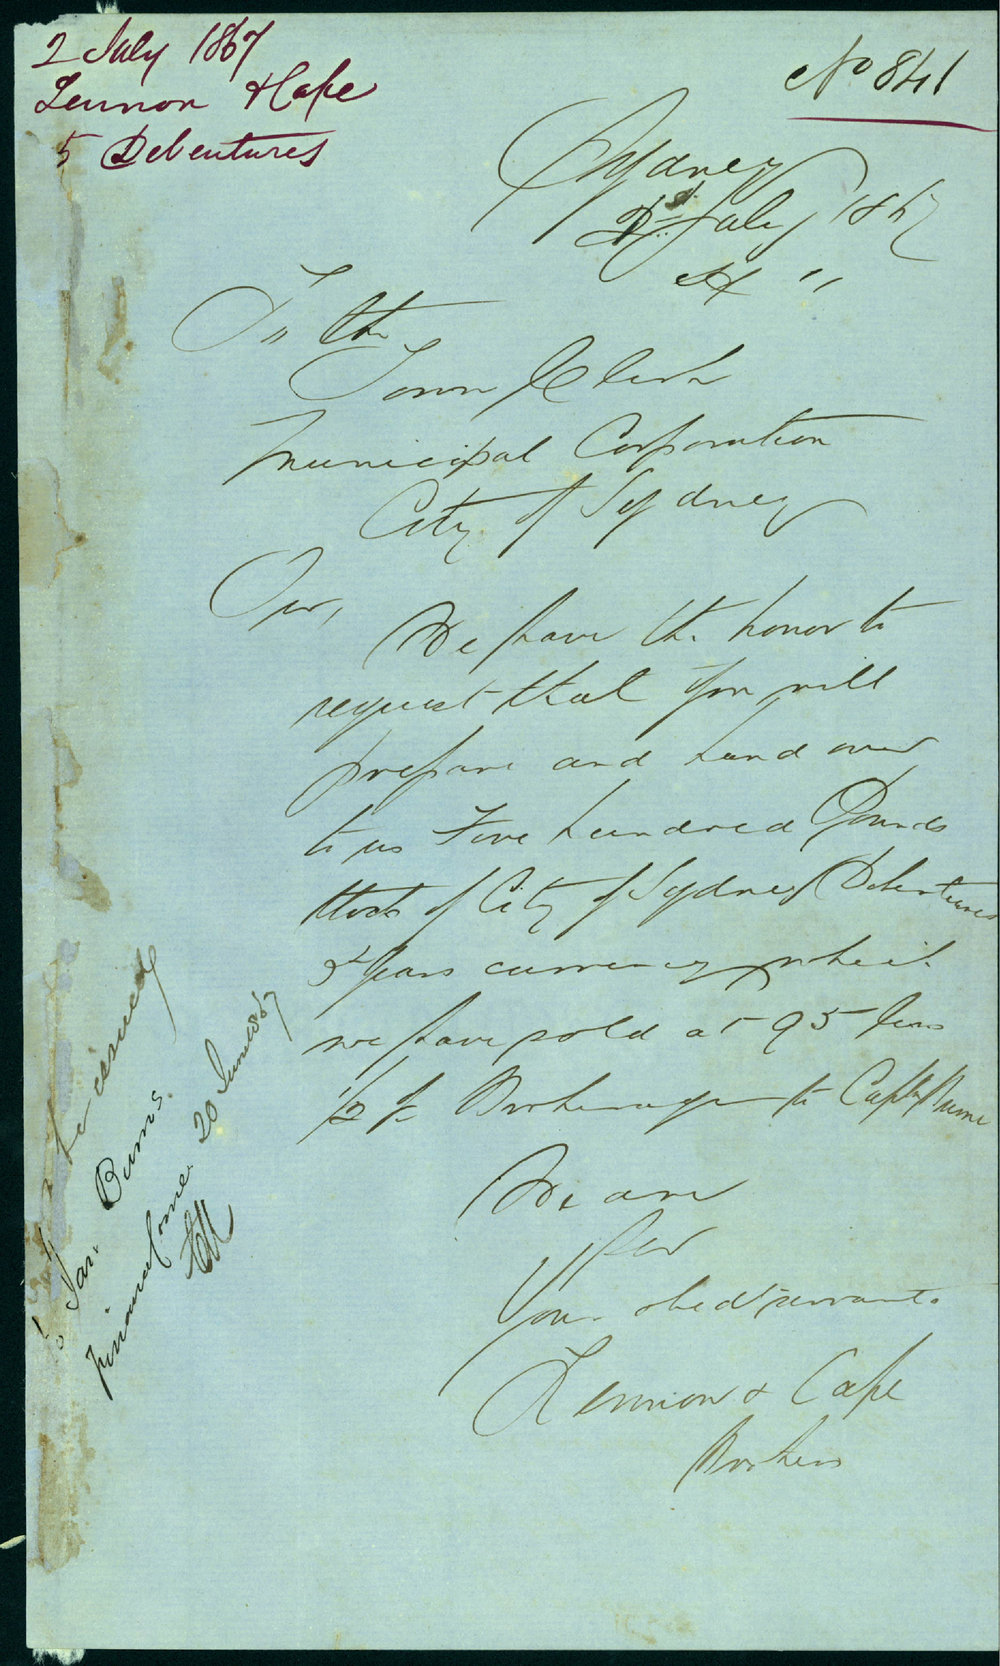 2 July 1867
Lennon & Cape
5 Debentures
No 841
Sydney
2d July 1867
To the
Town Clerk
Municipal Corporation
City of Sydney
Sir,
We have the honor to
request that you will
prepare and hand over
to us Five hundred Pounds
Stock of City of Sydney Debentures
5 Years currency which
we have sold at 95 less
1/2 % Brokerage to Capt
We are
Sir
Your obedt servants
Lennon & Cape
Brokers
be issued
Jas. Burns.
Finance Comee. 20 June 1867